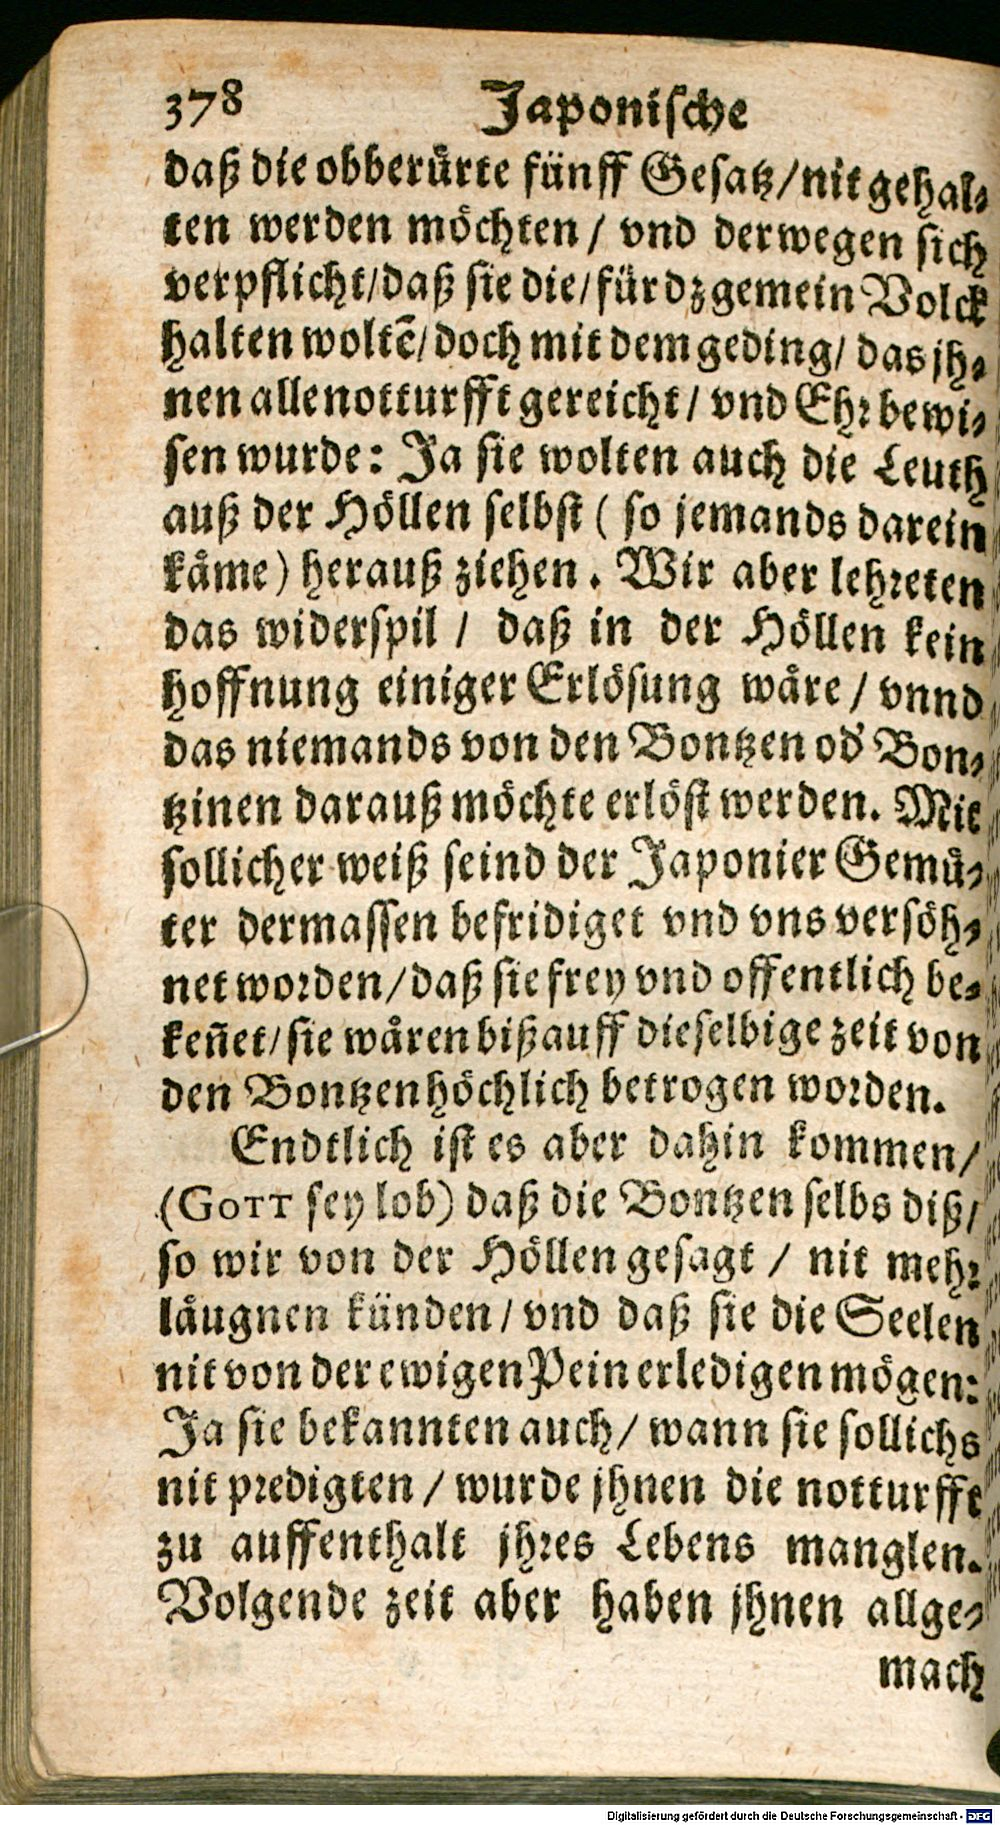 378 Japonische
daß die obberürte fünff Gesatz/nit gehal⸗
ten werden möchten / vnd derwegen sich
verpflicht/daß sie die/für dz gemein Volck
halten woltē/doch mit dem geding/ das jh⸗
nen alle notturfft gereicht / vnd Ehr bewi⸗
sen wurde: Ja sie wolten auch die Leuth
auß der Höllen selbst ( so jemands darein
kåme) herauß ziehen. Wir aber lehreten
das widerspil / daß in der Höllen kein
hoffnung einiger Erlösung wåre / vnnd
das niemands von den Bontzen od' Bon⸗
tzinen darauß möchte erlöst werden. Mit
sollicher weiß seind der Japonier Gemü⸗
ter dermassen befridiget vnd vns versöh⸗
net worden/daß sie frey vnd offentlich be⸗
keñet/sie wåren biß auff dieselbige zeit von
den Bontzen höchlich betrogen worden.
Endtlich ist es aber dahin kommen/
(GOTT sey lob) daß die Bontzen selbs diß/
so wir von der Höllen gesagt / nit mehr
låugnen künden/ vnd daß sie die Seelen
nit von der ewigen Pein erledigen mögen:
Ja sie bekannten auch/ wann sie sollichs
nit predigten / wurde jhnen die notturfft
zu auffenthalt jhres Lebens manglen.
Volgende zeit aber haben jhnen allge⸗
mach
Digitalisierung gefördert durch die Deutsche Forschungsgemeinschaft - DFG